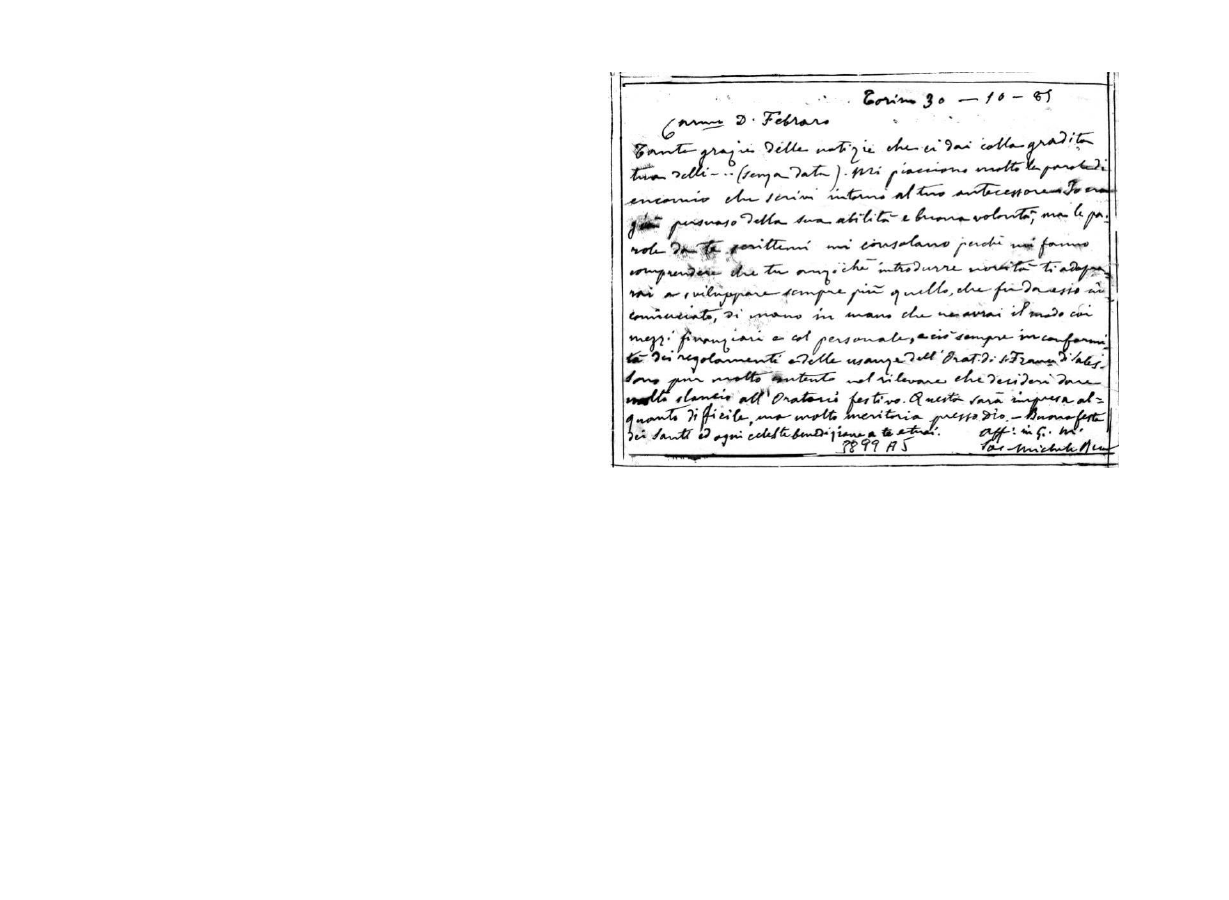 Torino 30 — 10 — 85
Carmo D. Febraro
Tante grazie delle notizie che ci dai colla gradita
tua delli - .. (senza data). Mi piacciono molto le parole di
encomio che scrivi intorno al tuo antecessore. Io era
già persuaso della sua abilità e buona volontà, ma le pa-
role da te scrittemi mi consolano perchè mi fanno
comprendere che tu anzichè introdurre novità ti adopre-
rai a sviluppare sempre più quello, che fu da esso in
cominciato, di mano in mano che ne avrai il modo coi
mezzi finanziari e col personale, e ciò sempre in conformi
tà dei regolamenti e delle usanze dell'Orat. di S. Franc. di Sales.
Sono pur molto contento nel rilevare che desideri dare
molto slancio all'Oratorio festivo. Questa sarà impresa al=
quanto difficile, ma molto meritoria presso Dio. — Buona festa
dei Santi ed ogni celeste benedizione a te e tuoi. Aff: in G. M.
Sac. Michele Rua
3899 A5